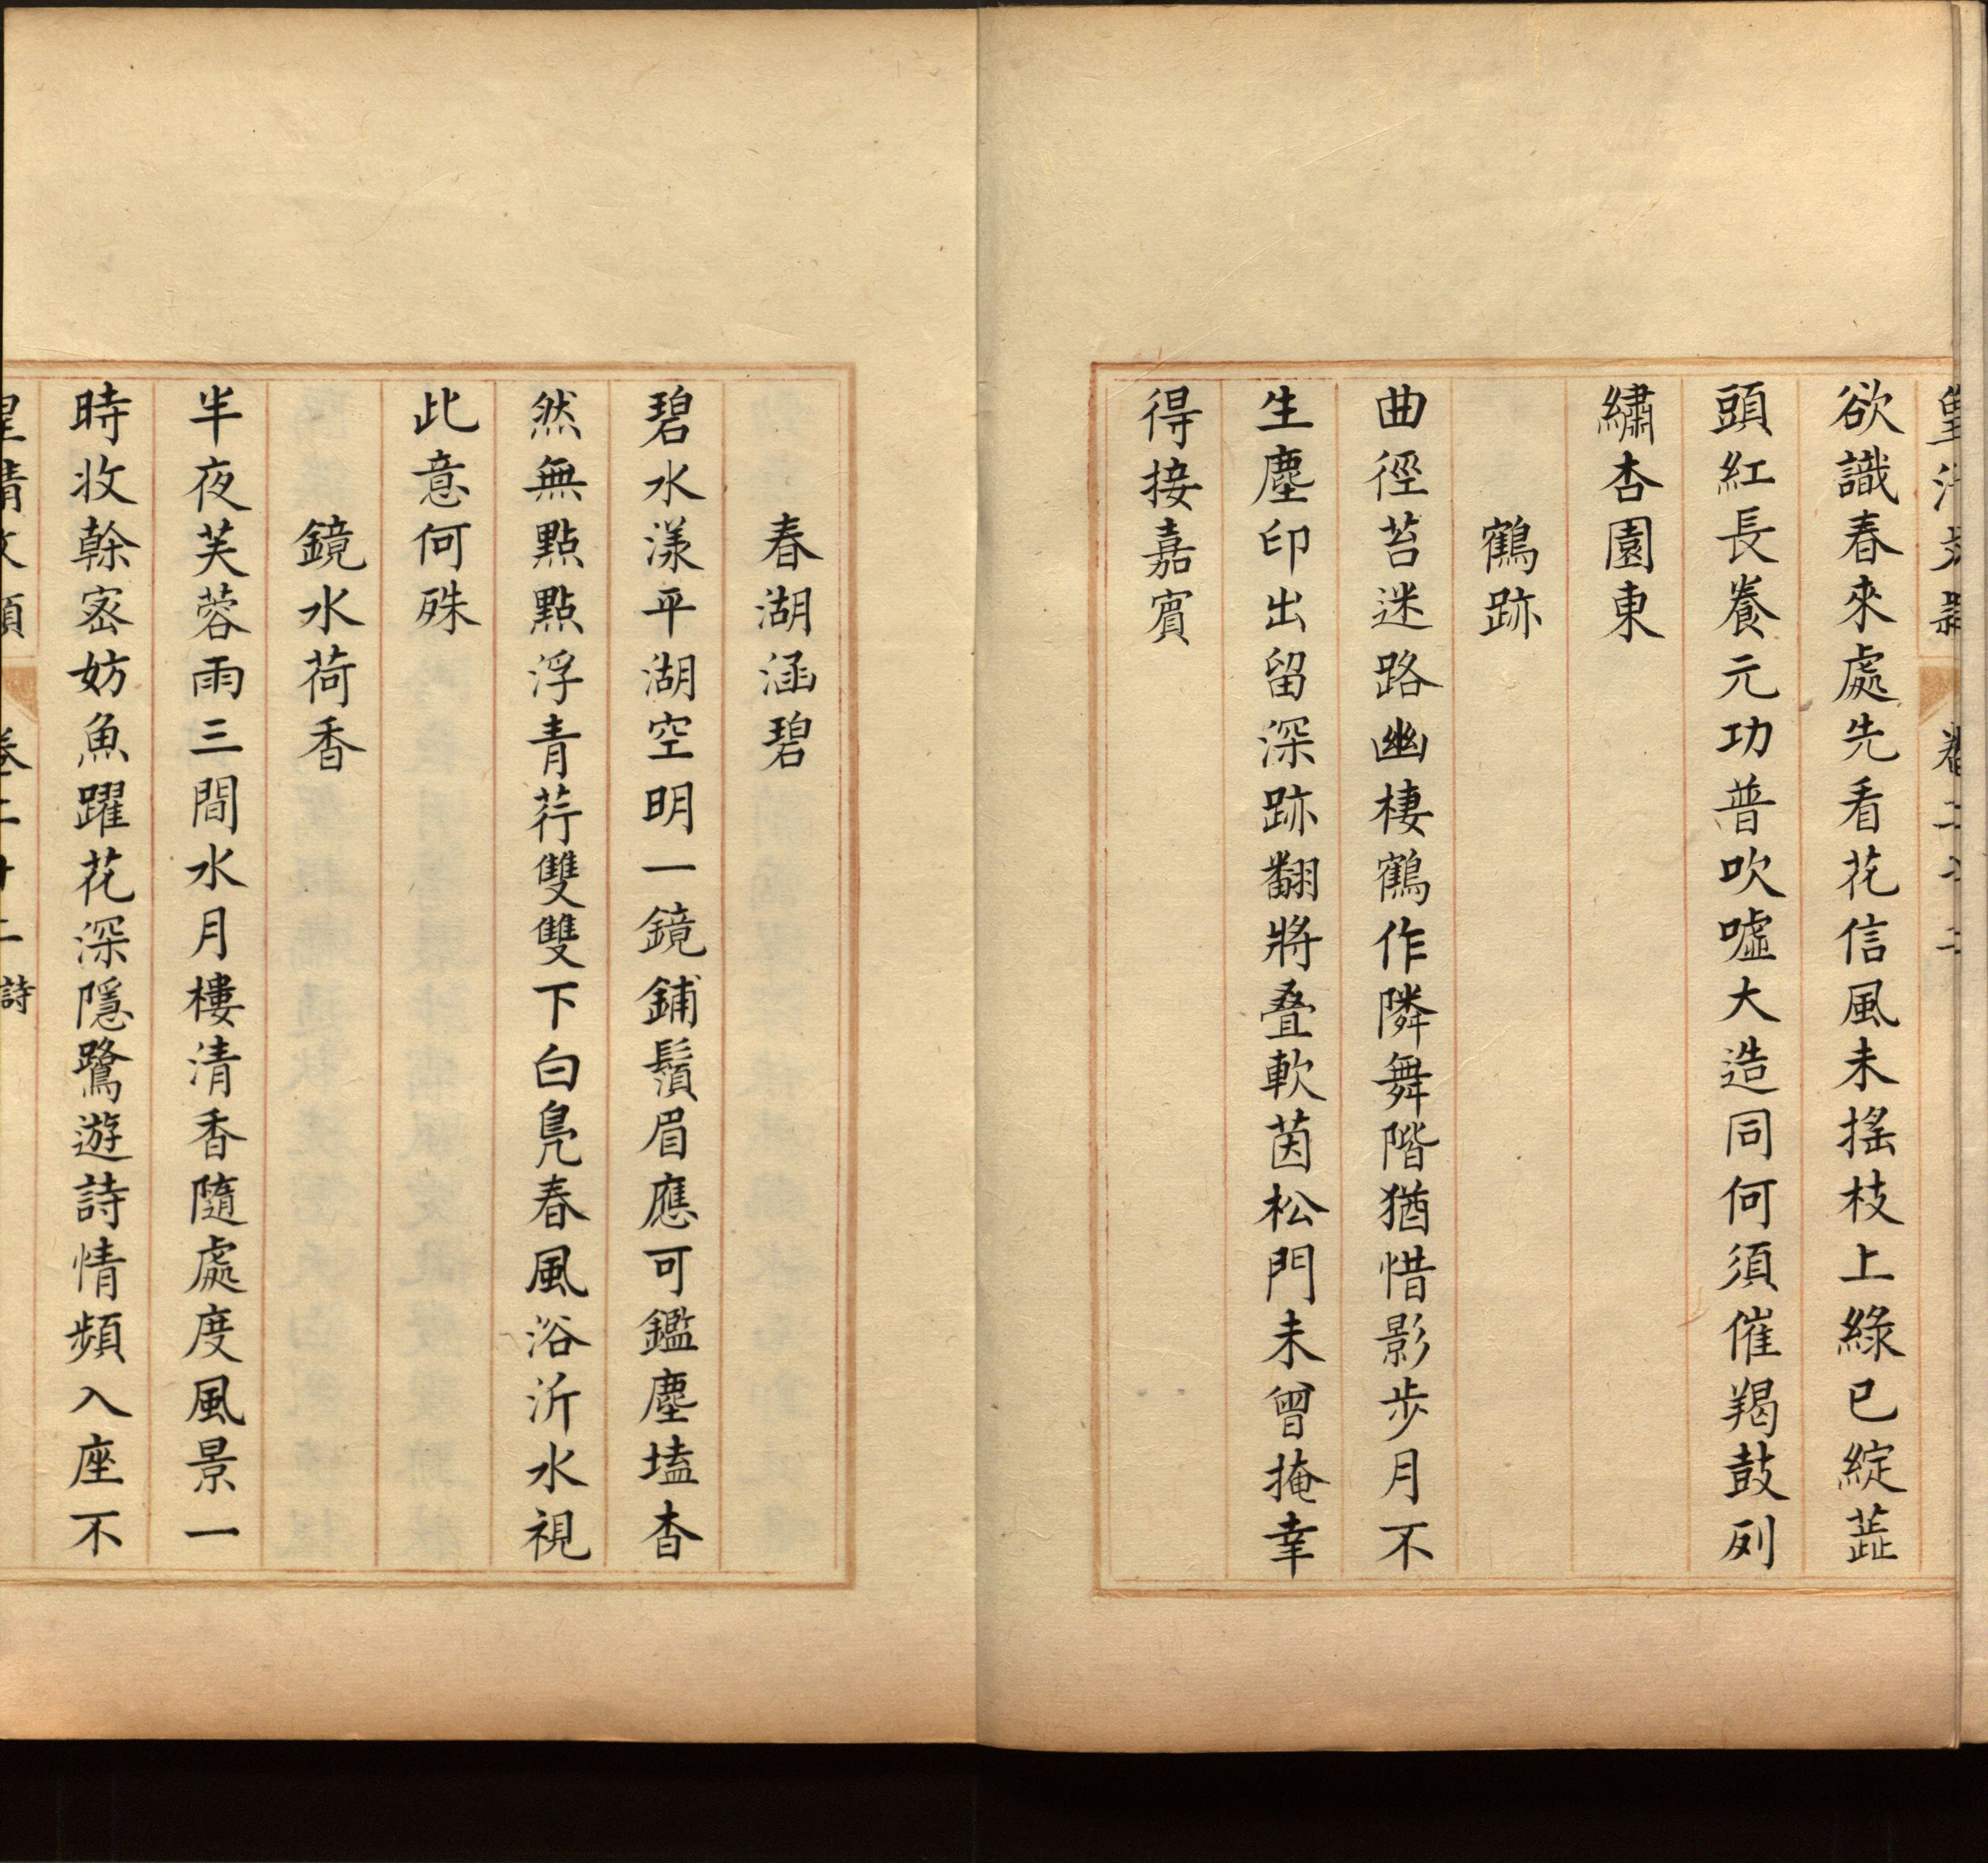 欲識春來處先看花信風未搖枝上綠已綻蕋
頭紅長養元功普吹噓大造同何須催羯鼓列
繡杏園東
鶴跡
曲徑苔迷路幽棲鶴作隣舞階猶惜影步月不
生塵印出留深跡翻將叠軟茵松門未曾掩幸
得接嘉賓
春湖涵碧
碧水漾平湖空明一鏡鋪鬚眉應可鑑塵壒杳
然無點點浮青荇雙雙下白鳧春風浴沂水視
此意何殊
鏡水荷香
半夜芙蓉雨三間水月樓清香隨處度風景一
時收榦宻妨魚躍花深隱鷺遊詩情頻入座不
皇清文穎 卷二十二 詩